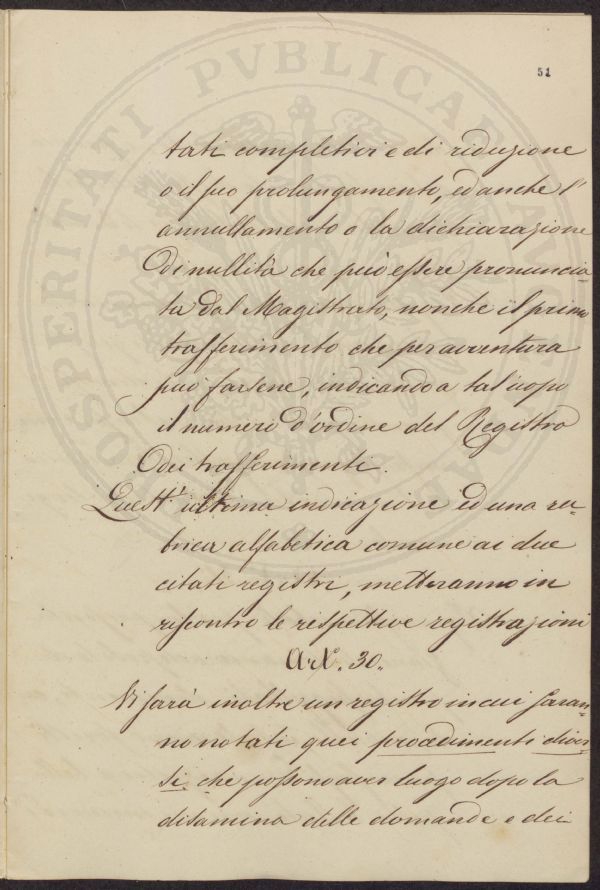 51
tati completivi e di riduzione
o il suo prolungamento, ed anche l'
annullamento o la dichiarazione
di nullità che può essere pronuncia-
ta dal Magistrato, nonche il primo
trasferimento che per avventura
può farsene, indicando a tal'uopo
il numero d'ordine del Registro
dei trasferimenti.
Quest'ultima indicazione ed una ru-
brica alfabetica comune ai due
citati registri, metteranno in
riscontro le rispettive registrazioni
Art. 30.
Vi sarà inoltre un registro in cui saran-
no notati quei procedimenti diver-
si che possono aver luogo dopo la
disamina delle domande e dei
PROSPERITATI PVBLICAE AVGENDAE